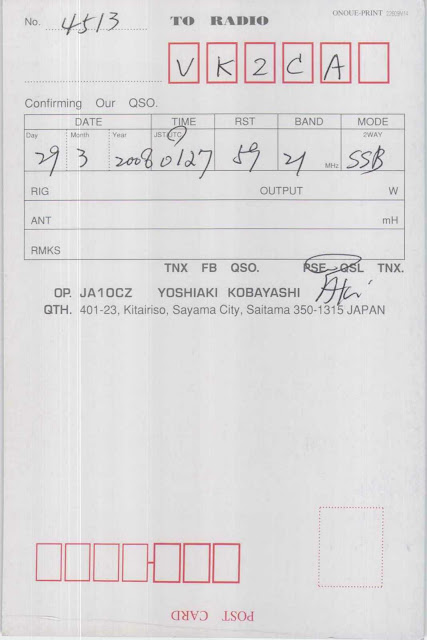 ONOUE-PRINT
No. 4513 TO RADIO
VK2CA
Confirming Our QSO.
DATE TIME RST BAND MODE
Day Month Year JST UTC 2WAY
29 3 2008 0127 59 21 MHz SSB
RIG OUTPUT W
ANT mH
RMKS
TNX FB QSO. PSE QSL TNX.
OP. JA1OCZ YOSHIAKI KOBAYASHI
QTH. 401-23, Kitairiso, Sayama City, Saitama 350-1315 JAPAN
POST CARD